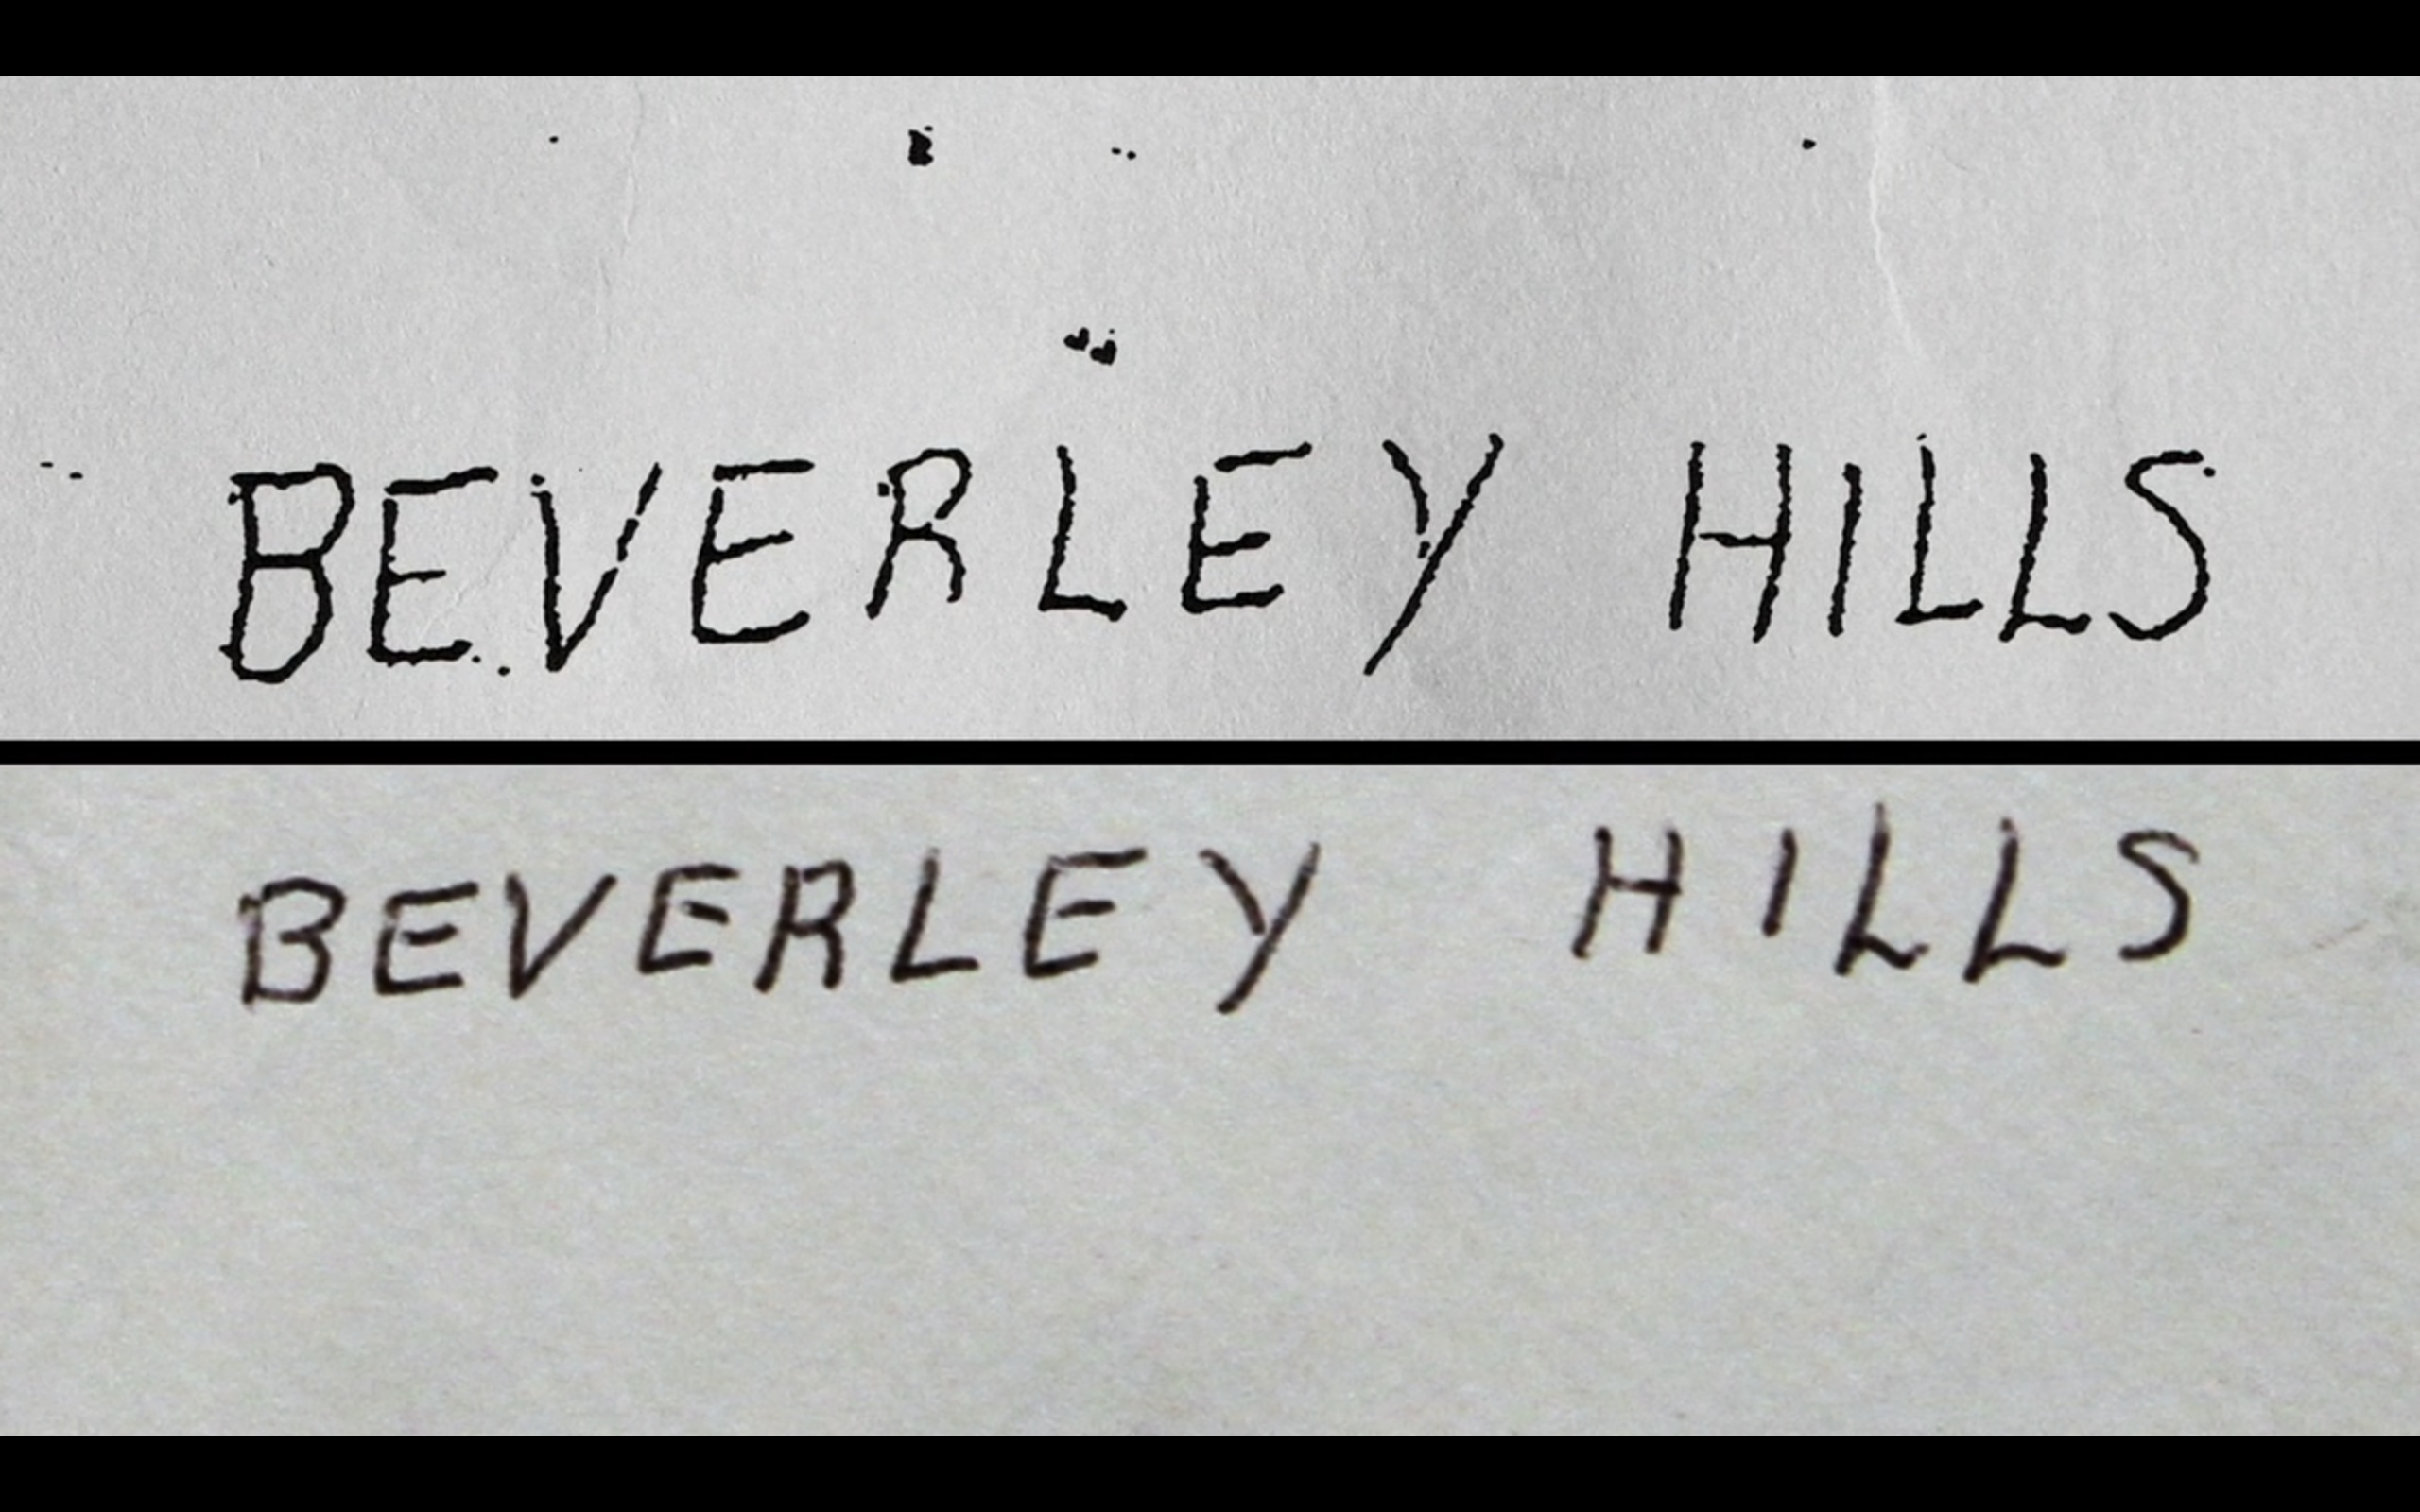 BEVERLEY HILLS
BEVERLEY HILLS